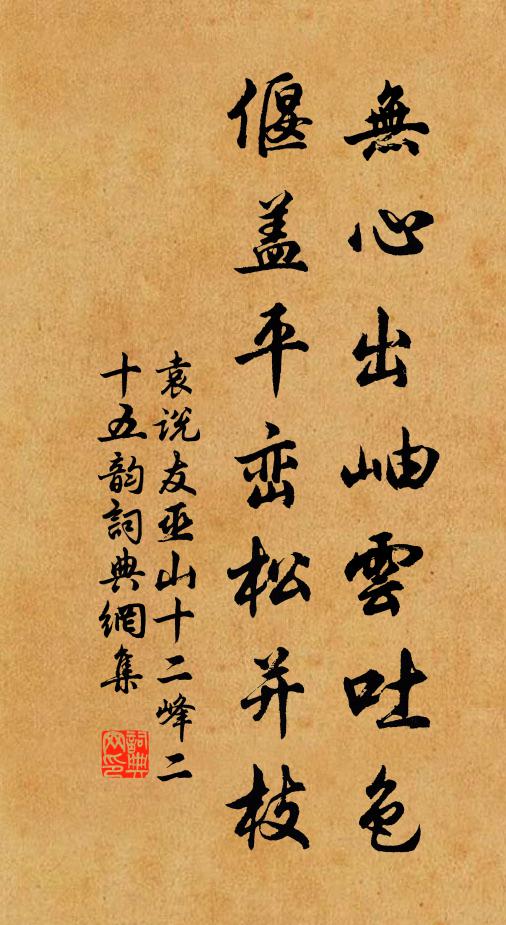 無心出岫雲吐色
偃盖平峦松并枝
袁说友巫山十二峰二
十五韵詞典網集
詞典
网印